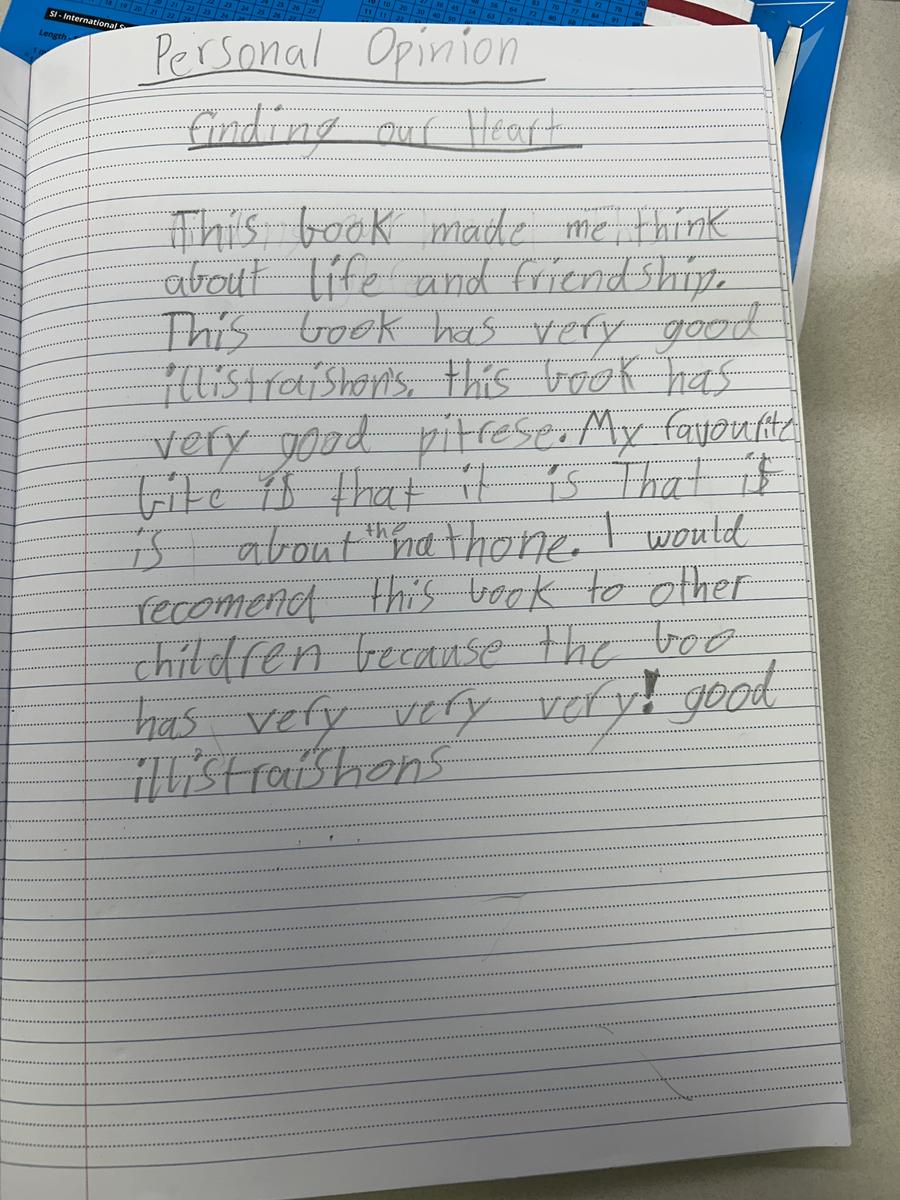 SI - International S
Length
Personal Opinion
finding our Heart
This book made me think
about life and friendship.
This book has very good
illistraishons. this book has
very good pitrese. My favourite
bite is that it is That it
is about the nathone. I would
recomend this book to other
children because the boo
has very very very! good
illistraishons